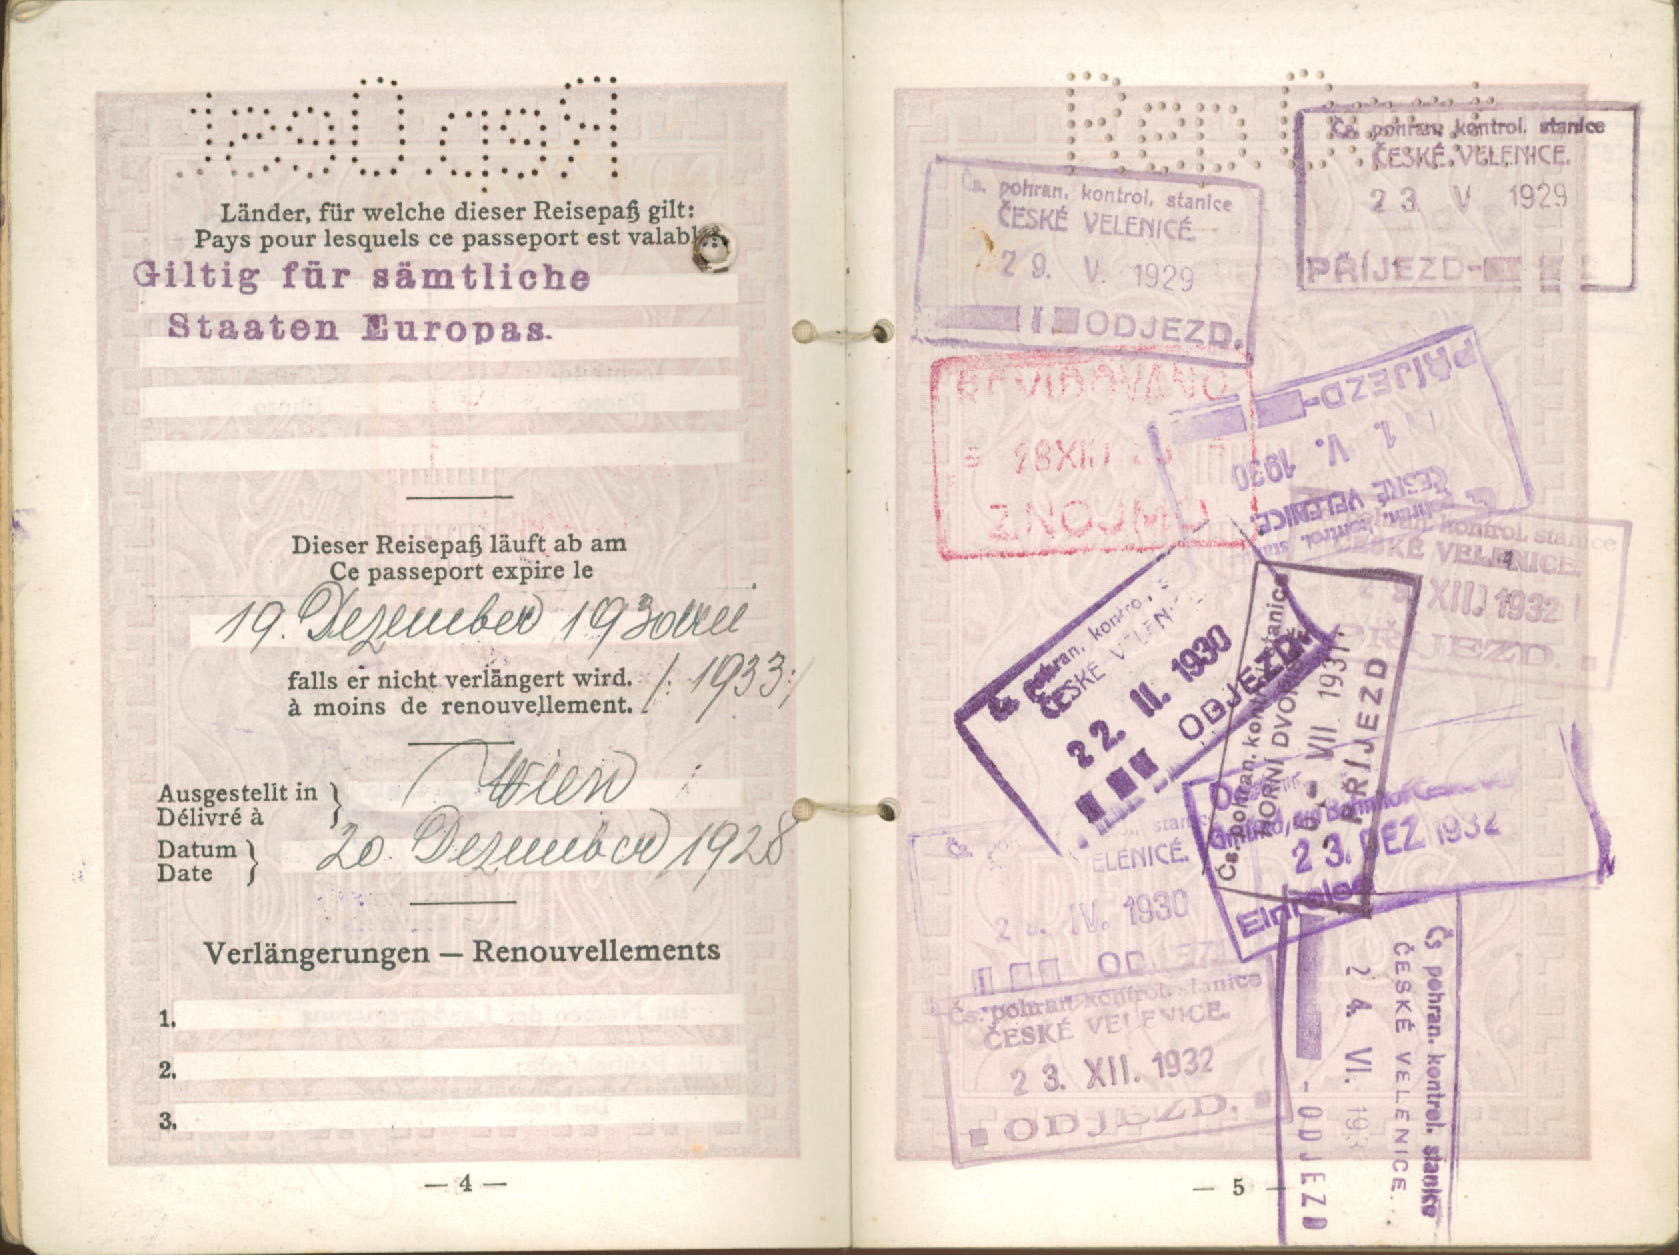 Rep. Öst.
Länder, für welche dieser Reisepaß gilt:
Pays pour lesquels ce passeport est valable
Giltig für sämtliche
Staaten Europas.
Dieser Reisepaß läuft ab am
Ce passeport expire le
19. Dezember 1930
falls er nicht verlängert wird.
à moins de renouvellement.
/: 1933 :/
Ausgestellt in
Délivré à
Wien
Datum
Date
20. Dezember 1928
Verlängerungen — Renouvellements
1.
2.
3.
— 4 —
Čs. pohran. kontrol. stanice
ČESKÉ VELENICE.
23 V 1929
PŘÍJEZD-
Čs. pohran. kontrol. stanice
ČESKÉ VELENICE.
29. V. 1929
ODJEZD.
REVIDOVÁNO
ZNOJMO
PŘÍJEZD-
1. V. 1930
ČESKÉ VELENICE.
pohran. kontrol. stanice
kontrol. stanice
ČESKÉ VELENICE
XII. 1932
PŘÍJEZD.
Čs. pohran. kontrol.
ČESKÉ VELEN
22. II. 1930
ODJEZD.
Čs. pohran. kontrol. stanice
HORNÍ DVOŘIŠTĚ
VII 1931
PŘÍJEZD
Gmünd,
23. DEZ. 1932
Einreise
Čs.
VELENICE.
IV. 1930
ODJEZD
Čs. pohran. kontrol. stanice
ČESKÉ VELENICE.
23. XII. 1932
ODJEZD.
Čs pohran. kontrol. stanice
ČESKÉ VELENICE.
24. VI. 193
-ODJEZD
— 5 —